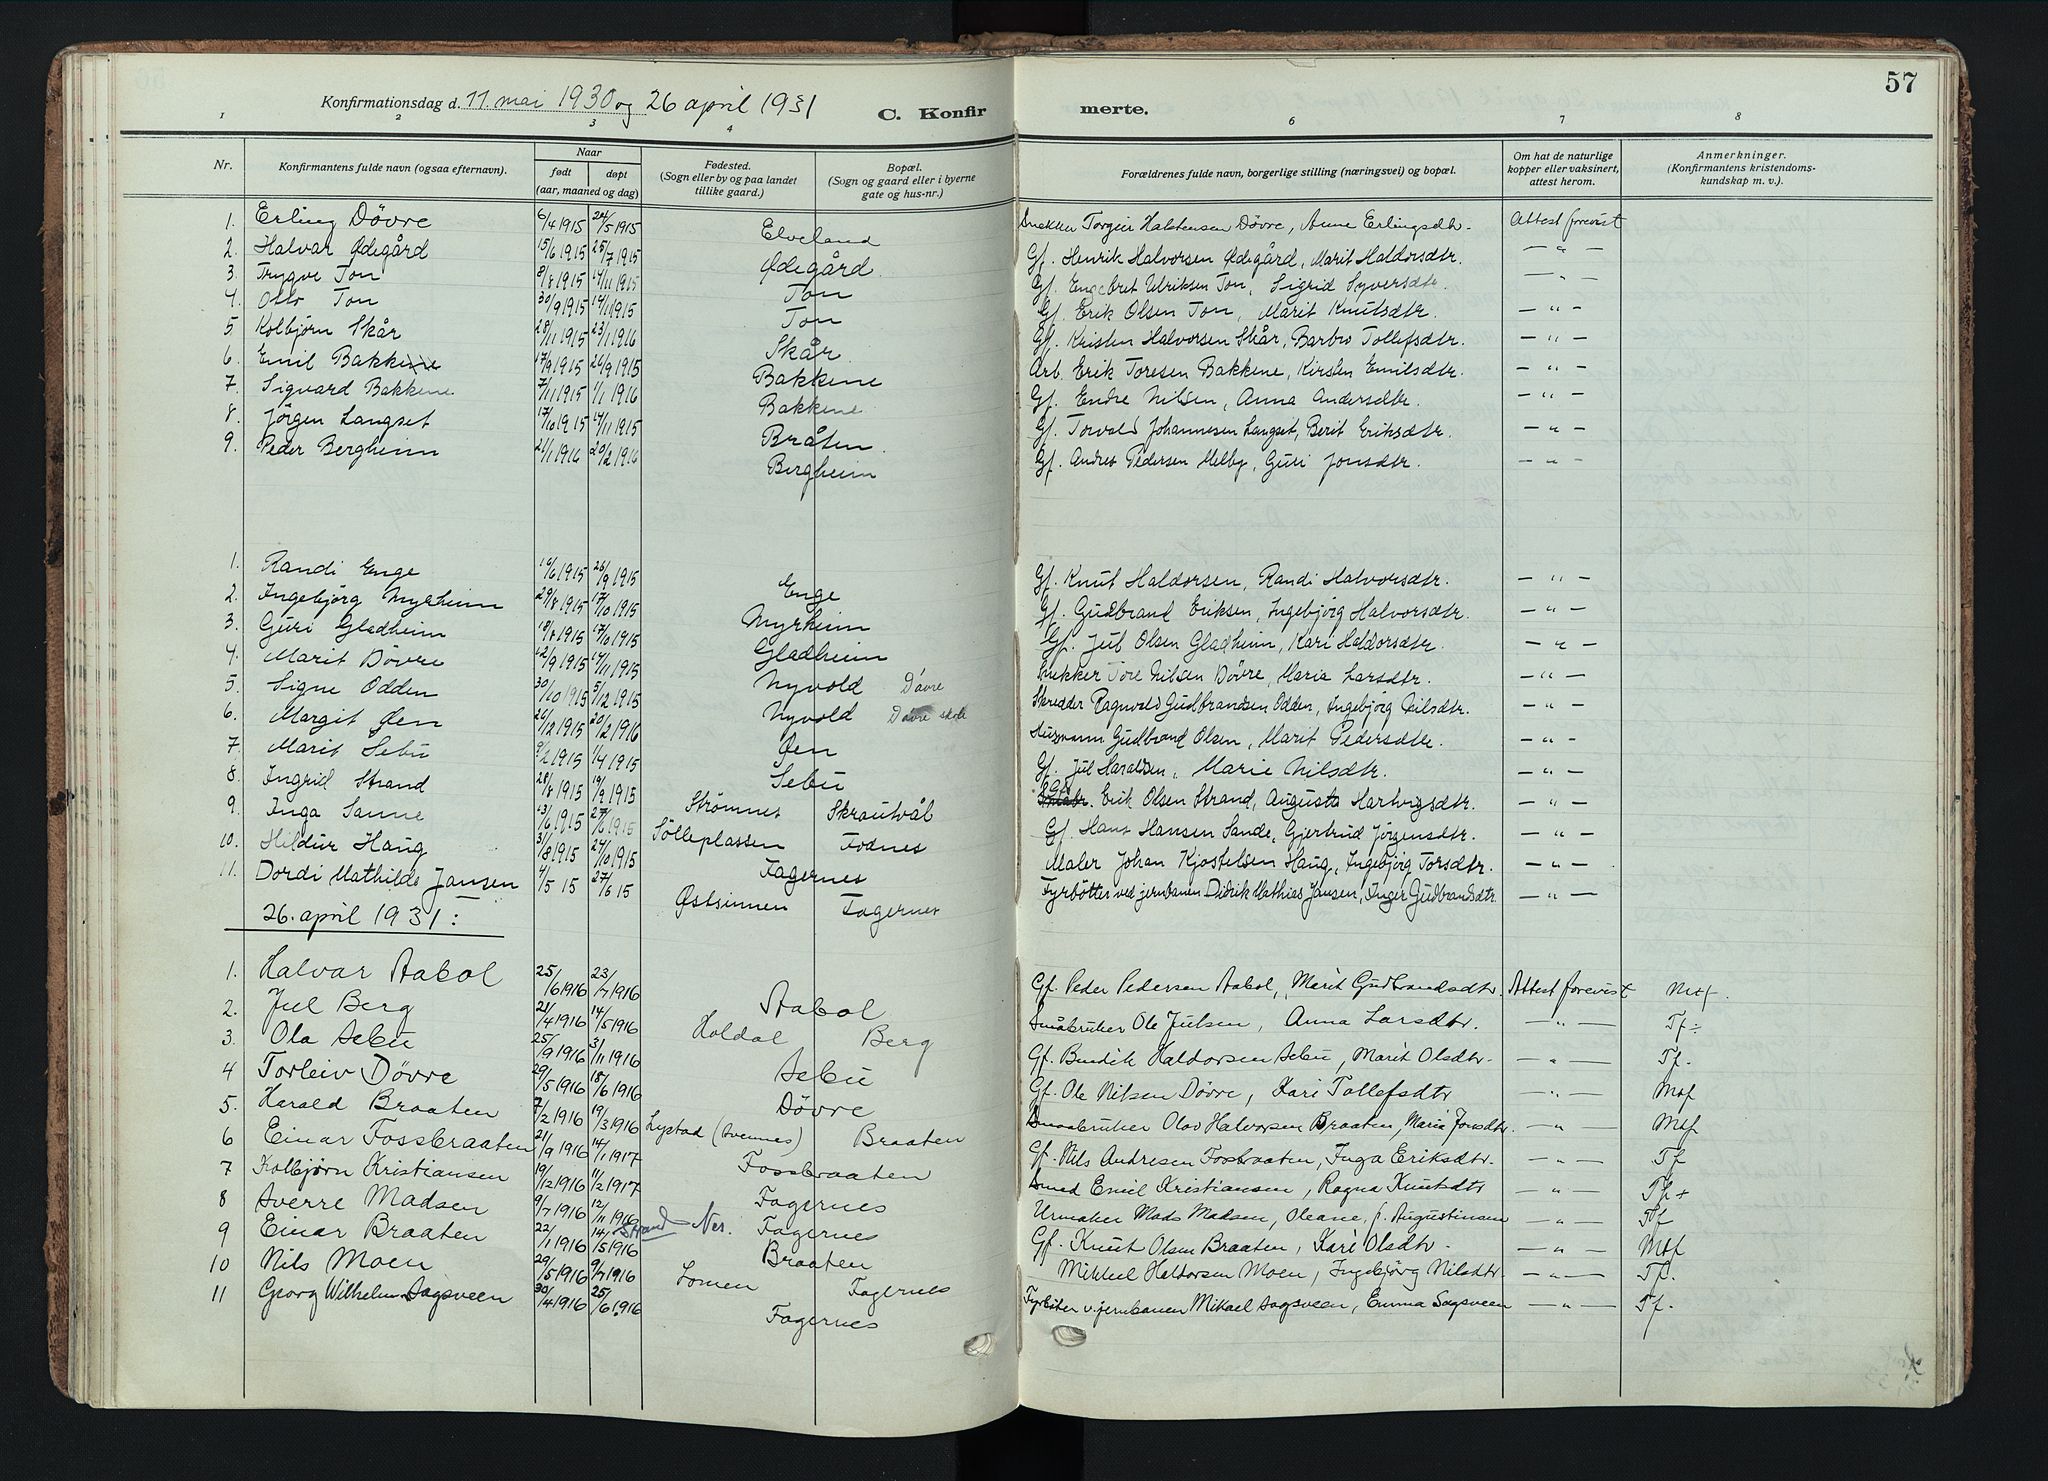 57
Konfirmationsdag d. 11. mai 1930 og 26 april 1931
C. Konfir merte.
1 2 3 4 6 7 8
Nr. Konfirmantens fulde navn (ogsaa efternavn). Naar født døpt (aar, maaned og dag) Fødested. (Sogn eller by og paa landet tillike gaard.) Bopæl. (Sogn og gaard eller i byerne gate og hus-nr.) Forældrenes fulde navn, borgerlige stilling (næringsvei) og bopæl. Om hat de naturlige kopper eller vaksinert, attest herom. Anmerkninger. (Konfirmantens kristendoms-kundskap m. v.).
1. Erling Døvre 6/4 1915 24/5 1915 Elveland Snekker Torgeir Halstensen Døvre, Anne Erlingsdtr. Attest forevist
2. Halvar Ødegård 15/6 1915 25/7 1915 Ødegård Gf. Henrik Halvorsen Ødegård, Marit Haldorsdtr. — " —
3. Trygve Ton 8/8 1915 14/11 1915 Ton Gf. Engebret Ulriksen Ton, Sigrid Syversdtr. — " —
4. Otto Ton 30/9 1915 14/11 1915 Ton Gf. Erik Olsen Ton, Marit Knutsdtr. — " —
5. Kolbjørn Skår 28/11 1915 23/1 1916 Skår Gf. Kristen Halvorsen Skår, Barbro Tollefsdtr. — " —
6. Emil Bakkene 17/9 1915 26/9 1915 Bakkene Arb. Erik Toresen Bakkene, Kirsten Emilsdtr. — " —
7. Sigvard Bakkene 7/11 1915 1/1 1916 Bakkene Gf. Endre Nilsen, Anna Andersdtr. — " —
8. Jørgen Langset 17/10 1915 14/11 1915 Bråten Gf. Torvald Johannesen Langset, Berit Eriksdtr. — " —
9. Peder Bergheim 21/1 1916 20/2 1916 Bergheim Gf. Andres Pedersen Melby, Guri Jonsdtr. — " —
1. Randi Enge 19/6 1915 26/9 1915 Enge Gf. Knut Haldorsen, Randi Halvorsdtr. — " —
2. Ingebjørg Myrheim 29/8 1915 17/10 1915 Myrheim Gf. Gudbrand Eriksen, Ingebjørg Halvorsdtr. — " —
3. Guri Gladheim 18/8 1915 17/10 1915 Gladheim Gf. Jul Olsen Gladheim, Kari Haldorsdtr. — " —
4. Marit Døvre 12/9 1915 14/11 1915 Nyvold Døvre Snekker Tore Nilsen Døvre, Maria Larsdtr. — " —
5. Signe Odden 30/10 1915 5/12 1915 Nyvold Døvre skole Skredder Ragnvald Gudbrandsen Odden, Ingebjørg Nilsdtr. — " —
6. Margit Øen 26/12 1915 20/2 1916 Øen Husmann Gudbrand Olsen, Marit Pedersdtr. — " —
7. Marit Sebu /2 1915 1/4 1915 Sebu Gf. Jul Haraldsen, Marie Nilsdtr. — " —
8. Ingrid Strand 28/8 1915 19/9 1915 Strømnes Skrautvål Gf. Erik Olsen Strand, Augusta Hartvigsdtr. — " —
9. Inga Sanne 13/6 1915 27/6 1915 Sölleplassen Fodnes Gf. Hans Hansen Sande, Gjertrud Jørgensdtr. — " —
10. Hildur Haug 31/8 1915 24/10 1915 Fagernes Maler Johan Kjostelsen Haug, Ingebjørg Torsdtr. — " —
11. Dordi Mathilde Jansen 4/5 15 27/6 15 Østsinnen Fagernes Fyrbötter ved jernbanen Didrik Mathias Jansen, Inger Gudbrandsdtr. — " —
26. april 1931:
1. Halvar Aabol 25/6 1916 23/7 1916 Aabol Gf. Peder Pedersen Aabol, Marit Gudbrandsdtr. Attest forevist Mtf.
2. Jul Berg 21/4 1916 14/5 1916 Holdal Berg Småbruker Ole Julsen, Anna Larsdtr. — " — Tf÷
3. Ola Sebu 25/9 1916 3/11 1916 Sebu Gf. Bendik Haldorsen Sebu, Marit Olsdtr. — " — Tf.
4 Torleiv Døvre 29/5 1916 18/6 1916 Døvre Gf. Ole Nilsen Døvre, Kari Tollefsdtr — " — Mtf
5. Harald Braaten 7/2 1916 19/3 1916 Lystad (Svennes) Braaten Smaabruker Olav Halvorsen Braaten, Marie Jonsdtr. — " — Mtf
6 Einar Fossbraaten 21/9 1916 14/1 1917 Fossbraaten Gf. Nils Andresen Fosbraaten, Inga Eriksdtr. — " — Tf
7 Kolbjørn Kristiansen 19/12 1916 11/2 1917 Fagernes Smed Emil Kristiansen, Ragna Knutsdtr — " — Tf+
8 Sverre Madsen 9/7 1916 12/11 1916 Strand Nes. Fagernes Urmaker Mads Madsen, Oleane f. Augustinsen — " — Tf
9 Einar Braaten 22/1 1916 14/5 1916 Braaten Gf. Knut Olsen Braaten, Kari Olsdtr. — " — Mtf
10 Nils Moen 29/5 1916 9/7 1916 Lomen Fagernes Mikkel Haldorsen Moen, Ingebjørg Nilsdtr. — " — Tf.
11 Georg Wilhelm Sagsveen 30/4 1916 25/6 1916 Fagernes Fyrbøter v. jernbanen Mikael Sagsveen, Emma Sagsveen — " — Tf.